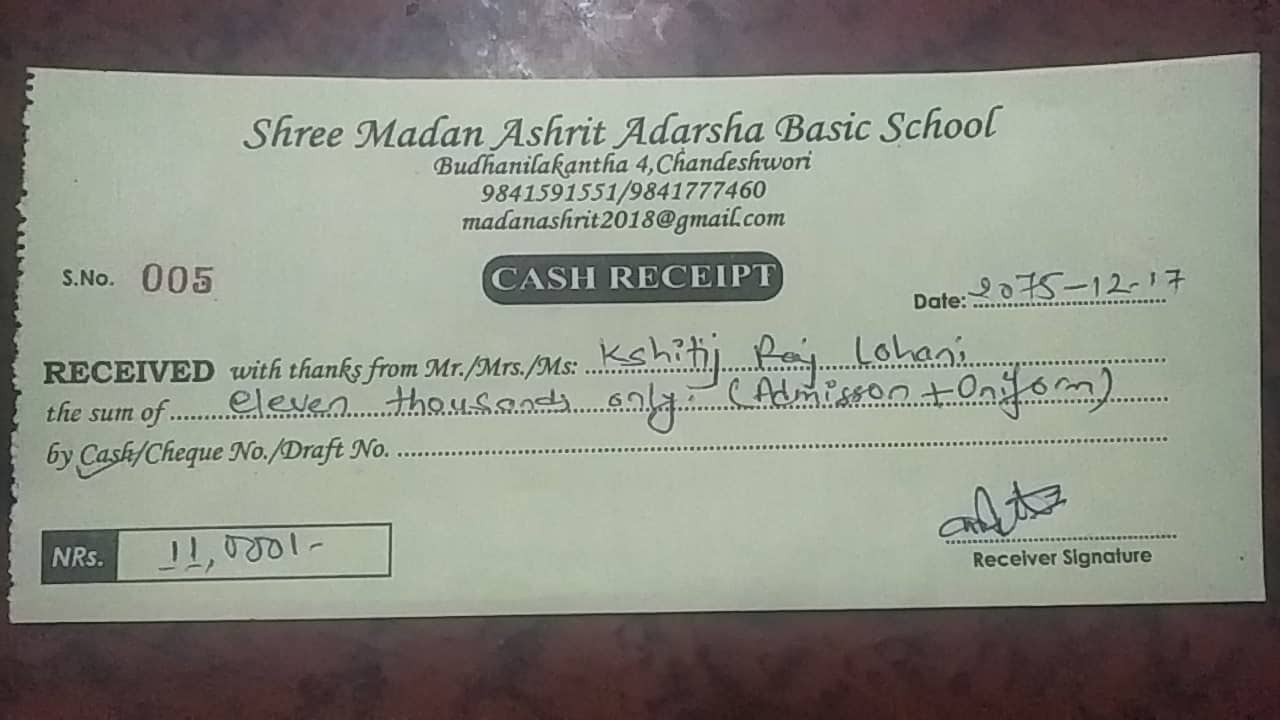 Shree Madan Ashrit Adarsha Basic School
Budhanilakantha 4,Chandeshwori
9841591551/9841777460
madanashrit2018@gmail.com
S.No. 005
CASH RECEIPT
Date: 2075-12-17
RECEIVED with thanks from Mr./Mrs./Ms: Kshitij Raj Lohani
the sum of eleven thousands only. (Admisson + Oniform)
by Cash/Cheque No./Draft No.
NRs. 11,000/-
Receiver Signature